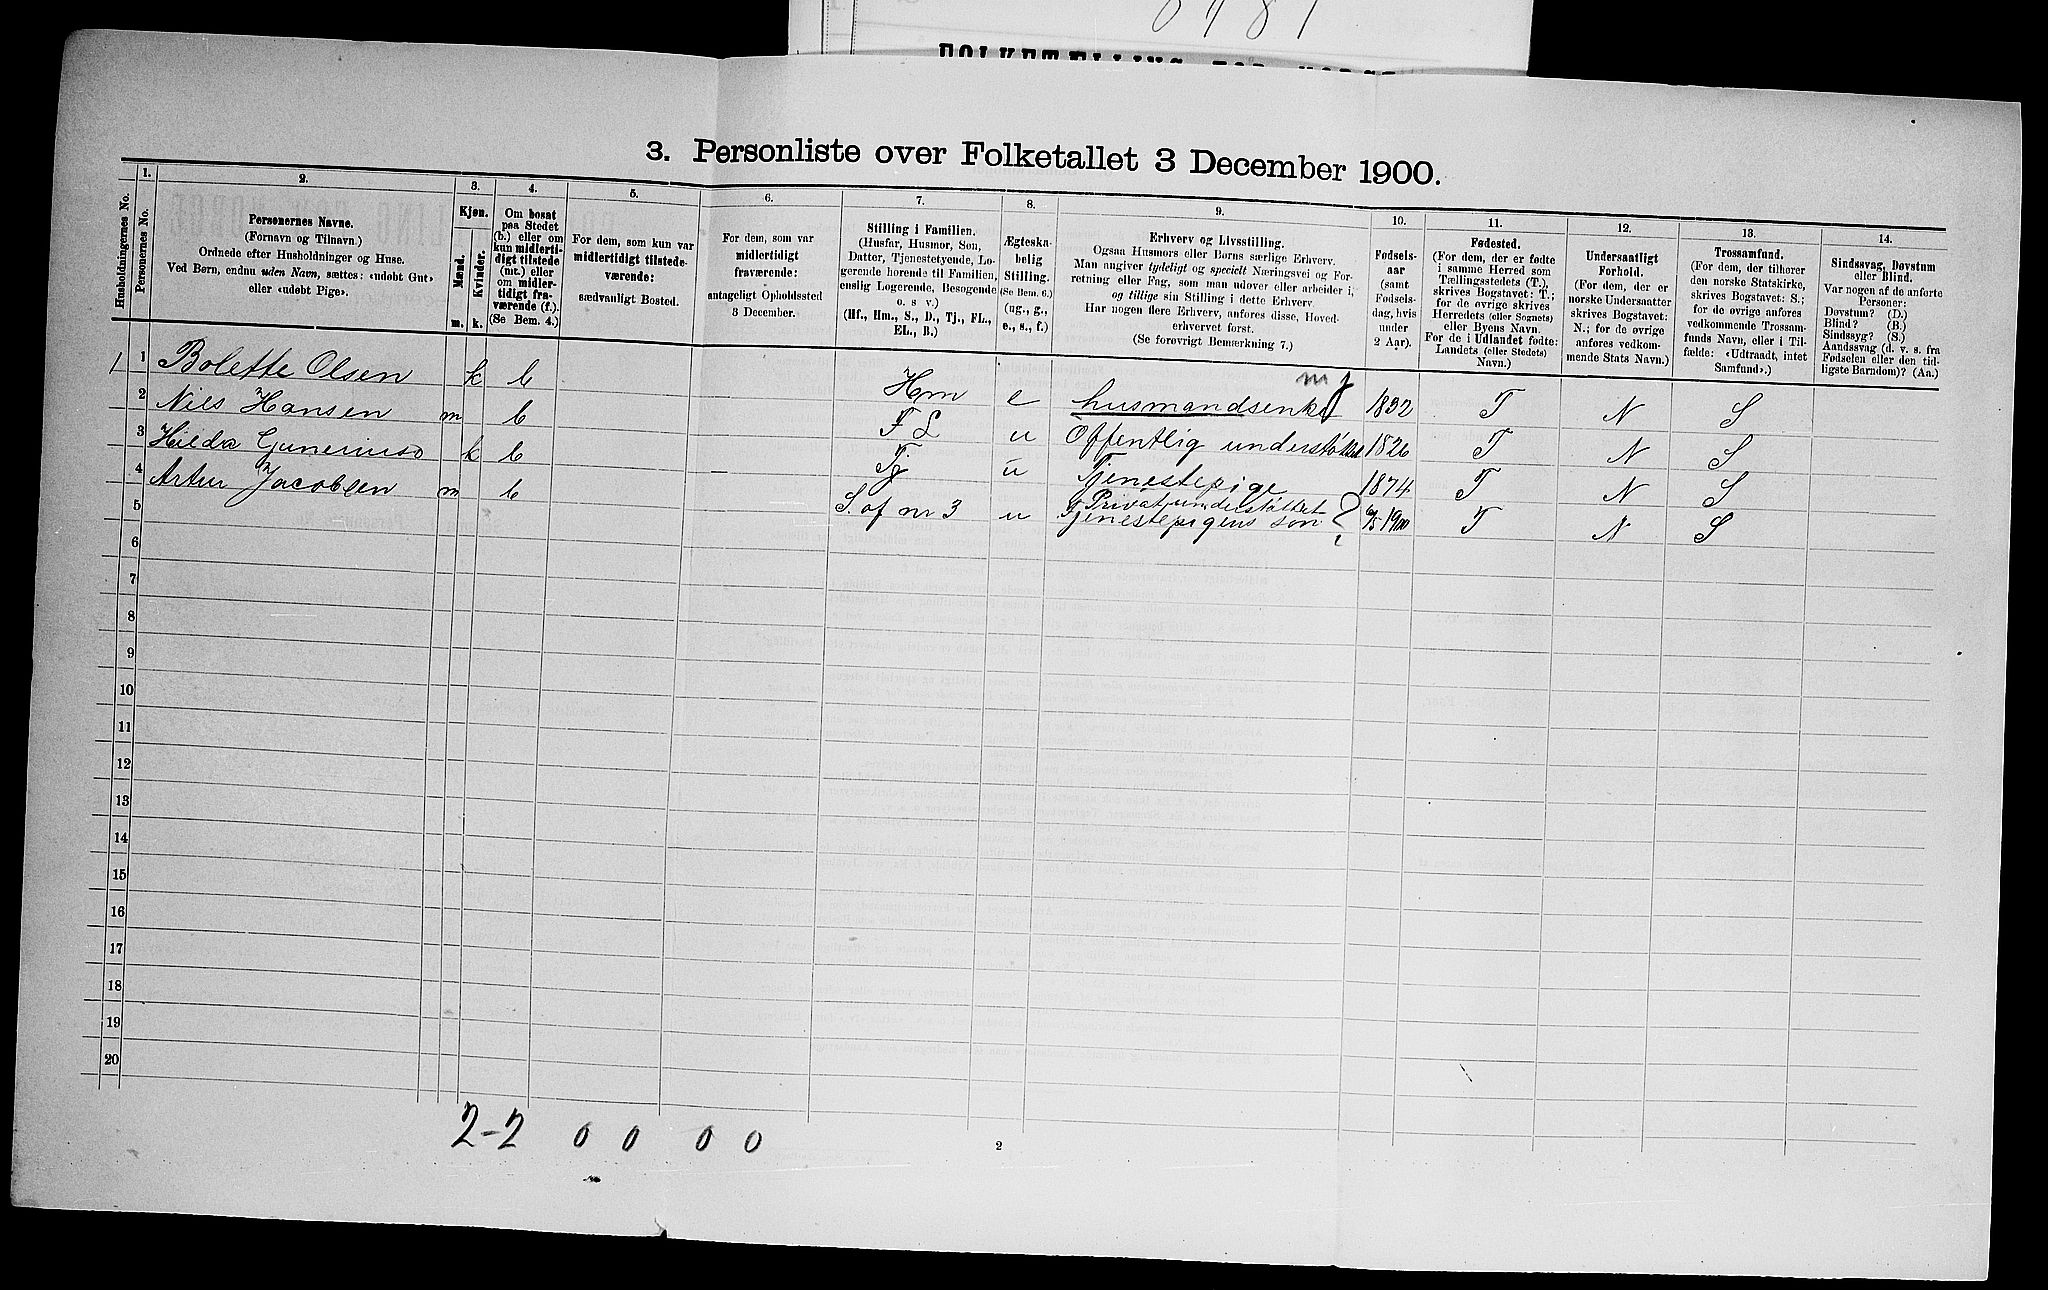 8481
FOLKETÆLLING FOR NORGE
3. Personliste over Folketallet 3 December 1900.
Husholdningernes No.
1.
Personernes No.
2.
Personernes Navne.
(Fornavn og Tilnavn.)
Ordnede efter Husholdninger og Huse.
Ved Børn, endnu uden Navn, sættes: «udøbt Gut»
eller «udøbt Pige».
3.
Kjøn.
Mænd.
Kvinder.
m.
k.
4.
Om bosat
paa Stedet
(b.) eller om
kun midlerti-
digt tilstede
(mt.) eller
om midler-
tidigt fra-
værende (f.).
(Se Bem. 4.)
5.
For dem, som kun var
midlertidigt tilstede-
værende:
sædvanligt Bosted.
6.
For dem, som var
midlertidigt
fraværende:
antageligt Opholdssted
3 December.
7.
Stilling i Familien.
(Husfar, Husmor, Søn,
Datter, Tjenestetyende, Lo-
gerende hørende til Familien,
enslig Logerende, Besøgende
o. s v.)
(Hf., Hm., S., D., Tj., FL.,
EL., B.)
8.
Ægteska-
belig
Stilling.
(Se Bem. 6.)
(ug., g.,
e., s., f.)
9.
Erhverv og Livsstilling.
Ogsaa Husmors eller Børns særlige Erhverv.
Man angiver tydeligt og specielt Næringsvei og For-
retning eller Fag, som man udøver eller arbeider i,
og tillige sin Stilling i dette Erhverv.
Har nogen flere Erhverv, anføres disse, Hoved-
erhvervet først.
(Se forøvrigt Bemærkning 7.)
10.
Fødsels-
aar
(samt
Fødsels-
dag, hvis
under
2 Aar).
11.
Fødested.
(For dem, der er fødte
i samme Herred som
Tællingsstedets (T.),
skrives Bogstavet: T.;
for de øvrige skrives
Herredets (eller Sognets)
eller Byens Navn.
For de i Udlandet fødte:
Landets (eller Stedets)
Navn.)
12.
Undersaatligt
Forhold.
(For dem, der er
norske Undersaatter
skrives Bogstavet:
N.; for de øvrige
anføres vedkom-
mende Stats Navn.)
13.
Trossamfund.
(For dem, der tilhører
den norske Statskirke,
skrives Bogstavet: S.;
for de øvrige anføres
vedkommende Trossam-
funds Navn, eller i Til-
fælde: «Udtraadt, intet
Samfund».)
14.
Sindssvag, Døvstum
eller Blind.
Var nogen af de anførte
Personer:
Døvstum? (D.)
Blind? (B.)
Sindssyg? (S.)
Aandssvag (d. v. s. fra
Fødselen eller den tid-
ligste Barndom)? (Aa.)
1 1 Bolette Olsen k b Hm e husmandsenke 1832 T N S
2 Nils Hansen m b FL u Offentlig understøttet 1826 T N S
3 Hilda Guneriusd k b - Tj u Tjenestepige 1874 T N S
4 Artur Jacobsen m b S. af nr 3 u Privat understøttet
Tjenestepigens søn ? 1900 T N S
5
6
7
8
9
10
11
12
13
14
15
16
17
18
19
20
2-2 0 0 0 0
2